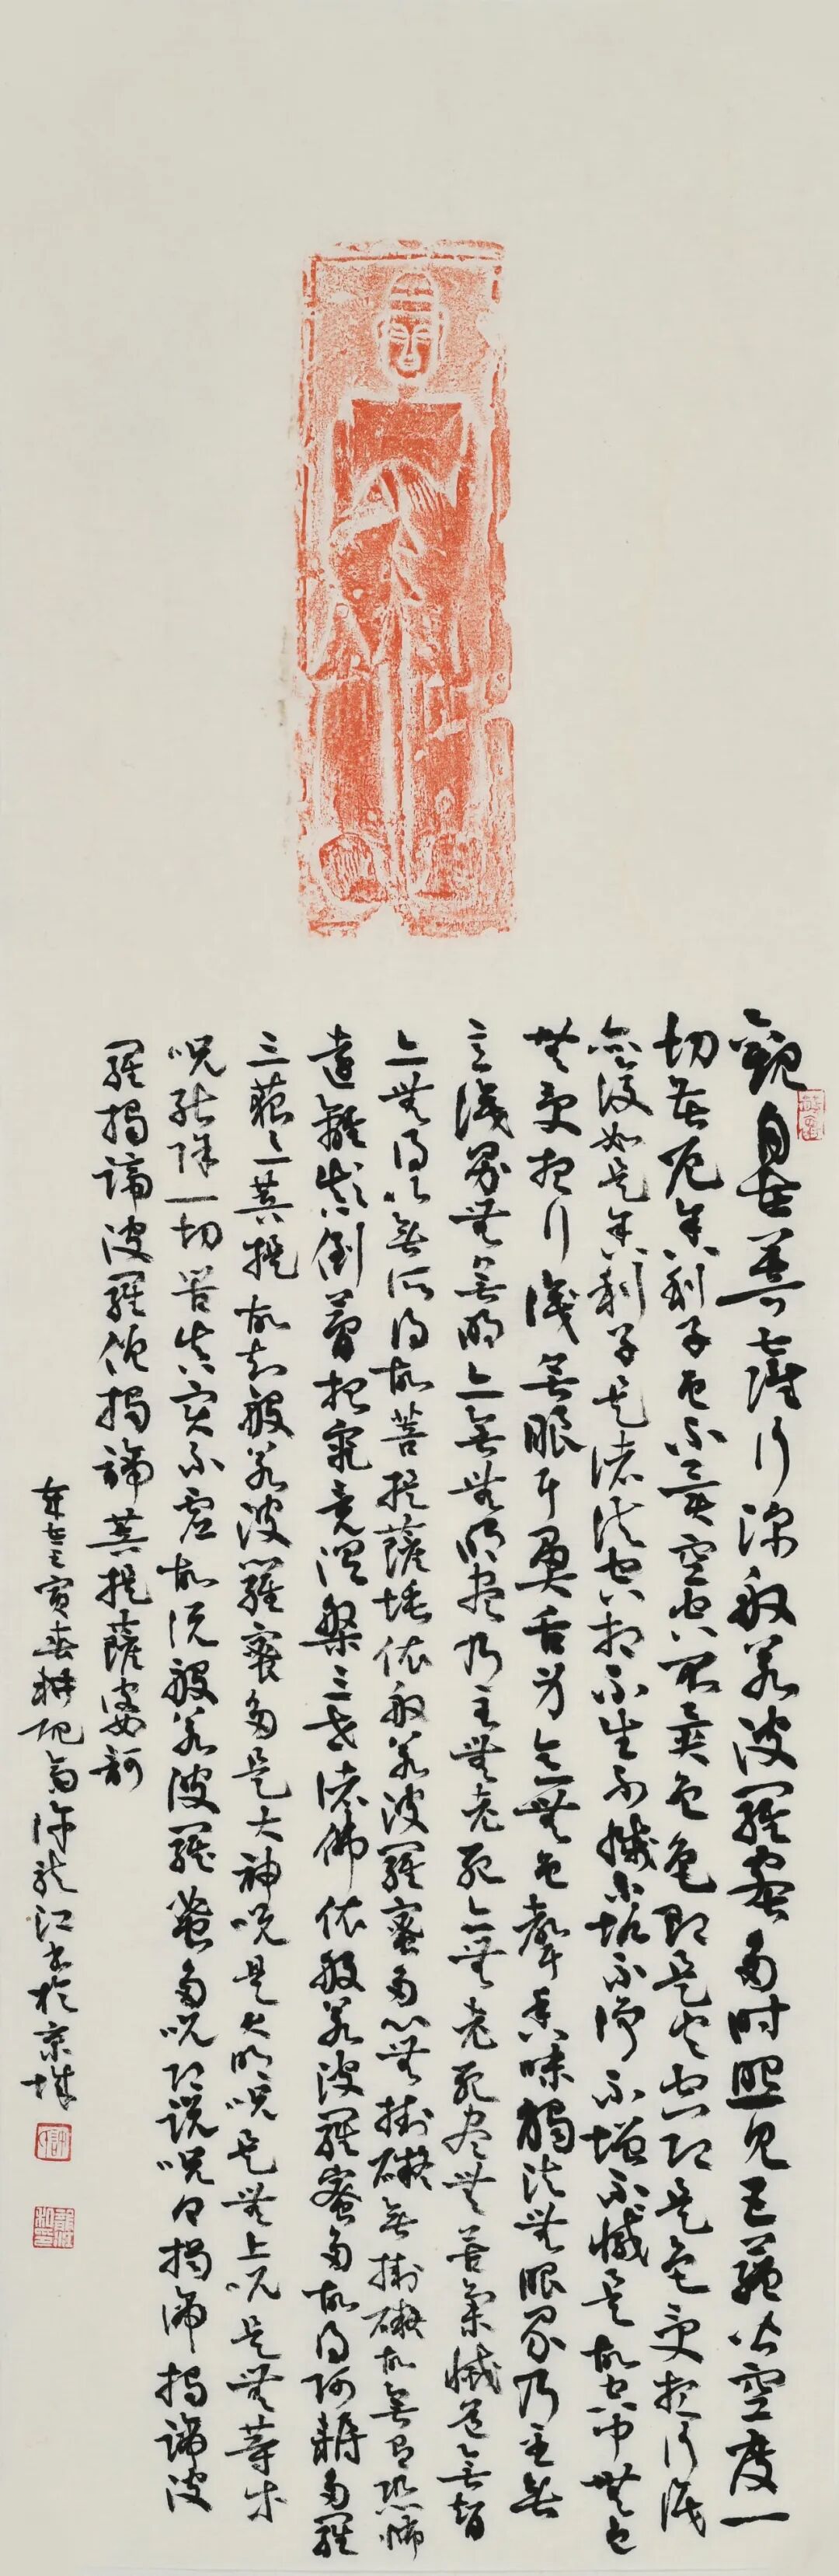 觀自在菩薩行深般若波羅蜜多時照見五蘊皆空度一
切苦厄舍利子色不異空空不異色色即是空空即是色受想行識
亦復如是舍利子是諸法空相不生不滅不垢不淨不增不減是故空中無色
無受想行識無眼耳鼻舌身意無色聲香味觸法無眼界乃至無
意識界無無明亦無無明盡乃至無老死亦無老死盡無苦集滅道無智
亦無得以無所得故菩提薩埵依般若波羅蜜多心無掛礙無掛礙故無有恐怖
遠離顛倒夢想究竟涅槃三世諸佛依般若波羅蜜多故得阿耨多羅
三藐三菩提故知般若波羅蜜多是大神咒是大明咒是無上咒是無等等
咒能除一切苦真實不虛故說般若波羅蜜多咒即說咒曰揭諦揭諦波
羅揭諦波羅僧揭諦菩提薩婆訶
壬寅春耕 許龍江書於京城